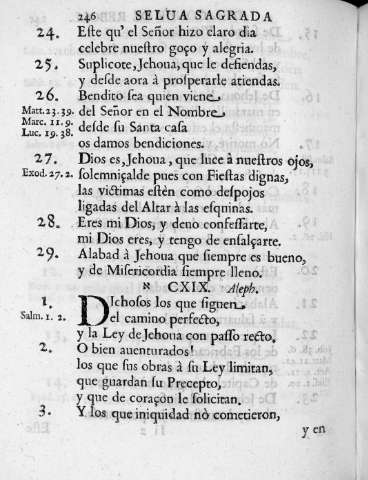 246 SELUA SAGRADA
24. Este qu' el Señor hizo claro dia
celebre nuestro goço y alegria.
25. Suplicote, Jehoua, que le defiendas,
y desde aora à prosperarle atiendas.
26. Bendito sea quien viene
Matt. 23. 39. del Señor en el Nombre
Marc. 11. 9. desde su Santa casa
Luc. 19. 38. os damos bendiciones.
27. Dios es, Jehoua, que luce à nuestros ojos,
Exod. 27. 2. solemniçalde pues con Fiestas dignas,
las victimas estèn como despojos
ligadas del Altar à las esquinas.
28. Eres mi Dios, y devo confessarte,
mi Dios eres, y tengo de ensalçarte.
29. Alabad à Jehoua que siempre es bueno,
y de Misericordia siempre lleno.
א CXIX. Aleph.
1. DIchosos los que siguen
Salm. 1. 2. el camino perfecto,
y la Ley de Jehoua con passo recto.
2. O bien auenturados!
los que sus obras à su Ley limitan,
que guardan su Precepto,
y que de coraçon le solicitan.
3. Y los que iniquidad nò cometieron,
y en